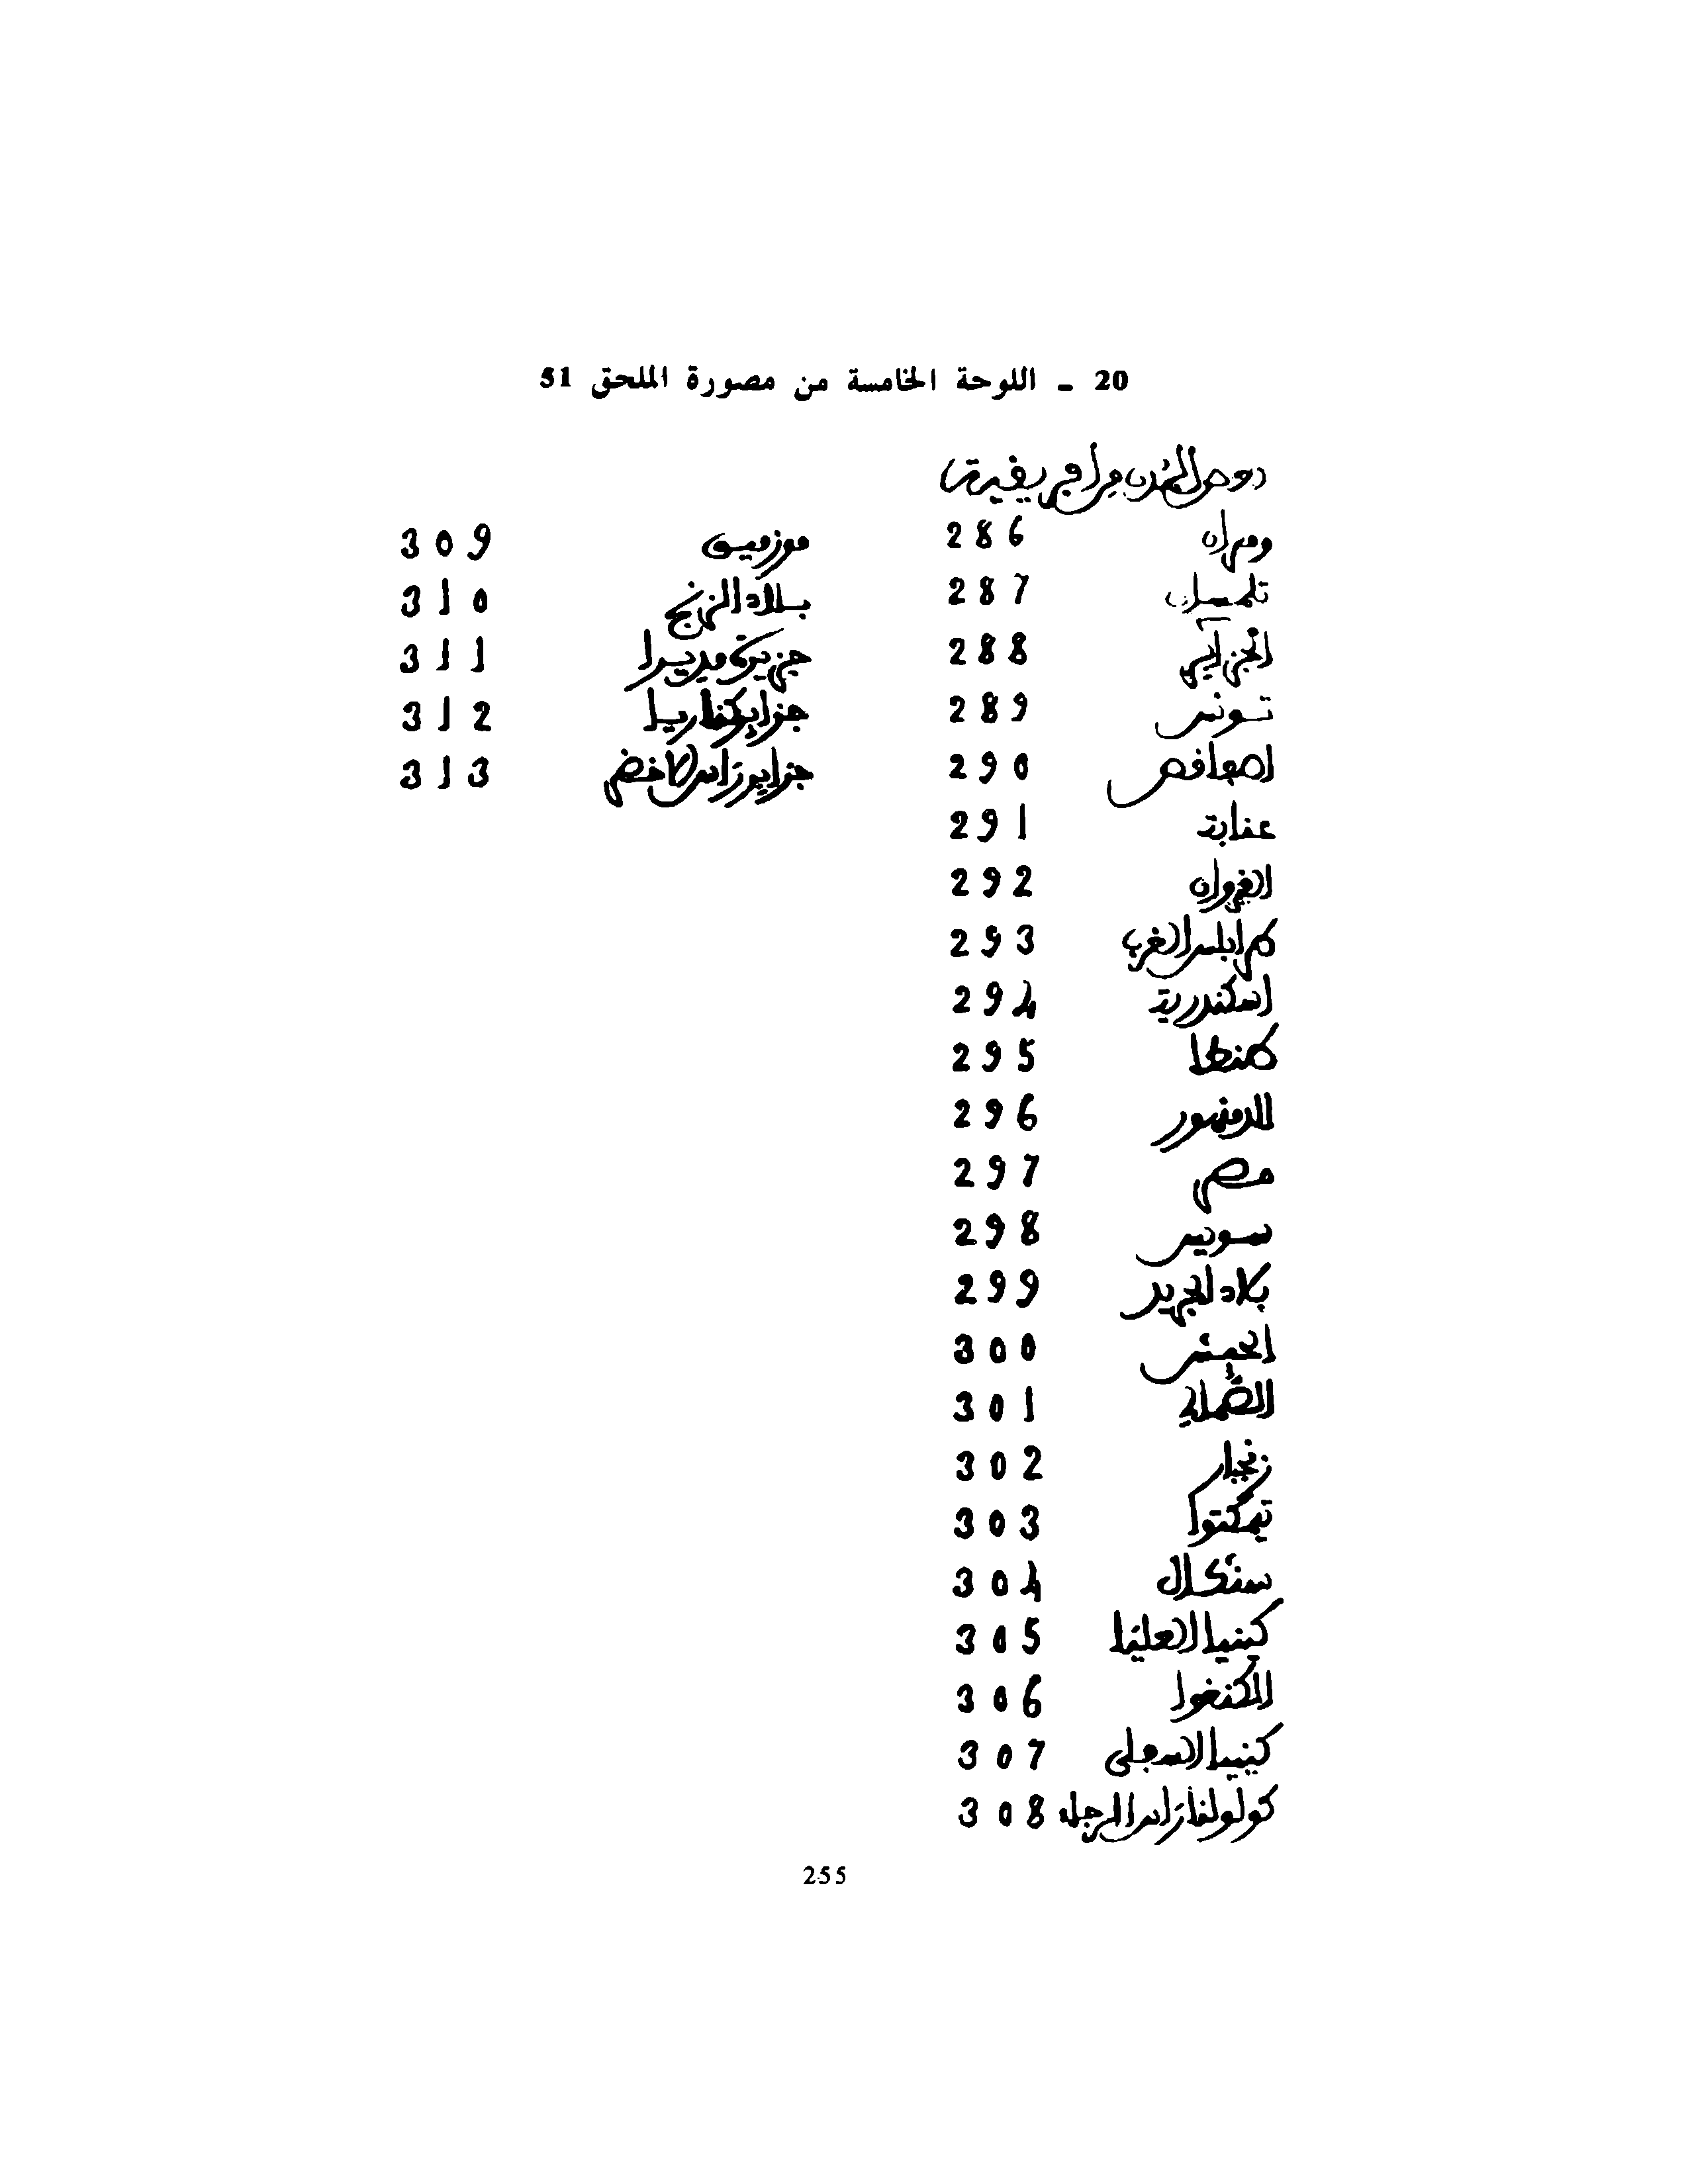 20 ـ اللوحة الخامسة من مصورة الملحق 51
وهران 286
تلمسان 287
الجزاير 288
تونس 289
اصفاقص 290
عنابة 291
القيروان 292
طرابلس الغرب 293
اسكندرية 294
طنطا 295
المنصور 296
مصر 297
سويس 298
بلاد الجريد 299
الحبش 300
الصمال 301
زنجبار 302
تمبكتوا 303
سنكال 304
كينيا العليا 305
الكنغوا 306
كينيا السفلى 307
كولونيا راس الرجا 308
موزمبيق 309
بلاد الزنج 310
جزيرة مديرا 311
جزاير كناريا 312
جزاير راس الاخضر 313
255